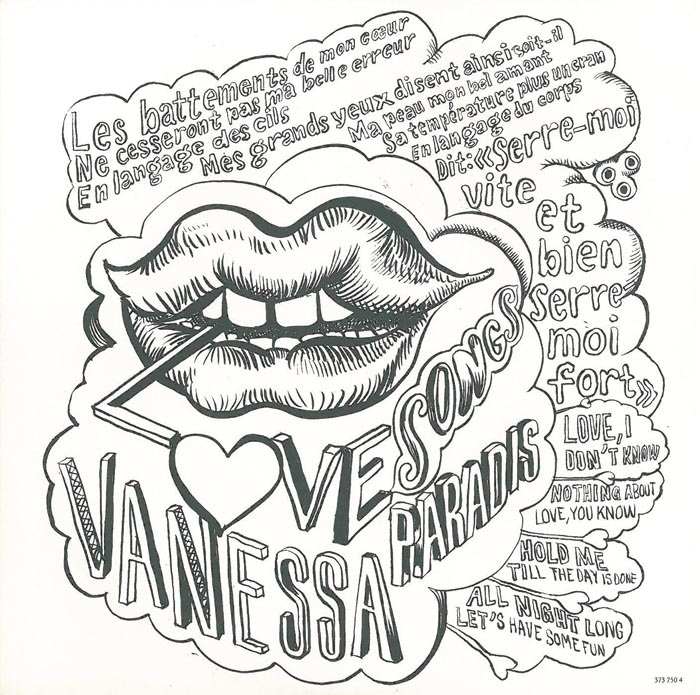 Les battements de mon cœur
Ne cesseront pas ma belle erreur
En langage des cils
Mes grands yeux disent ainsi soit-il
Ma peau mon bel amant
Sa température plus un cran
En langage du corps
Dit:«Serre-moi
vite et
bien
serre
moi
fort»
LOVE SONGS
VANESSA PARADIS
LOVE, I
DON'T KNOW
NOTHING ABOUT
LOVE, YOU KNOW
HOLD ME
TILL THE DAY IS DONE
ALL NIGHT LONG
LET'S HAVE SOME FUN
373 750 4